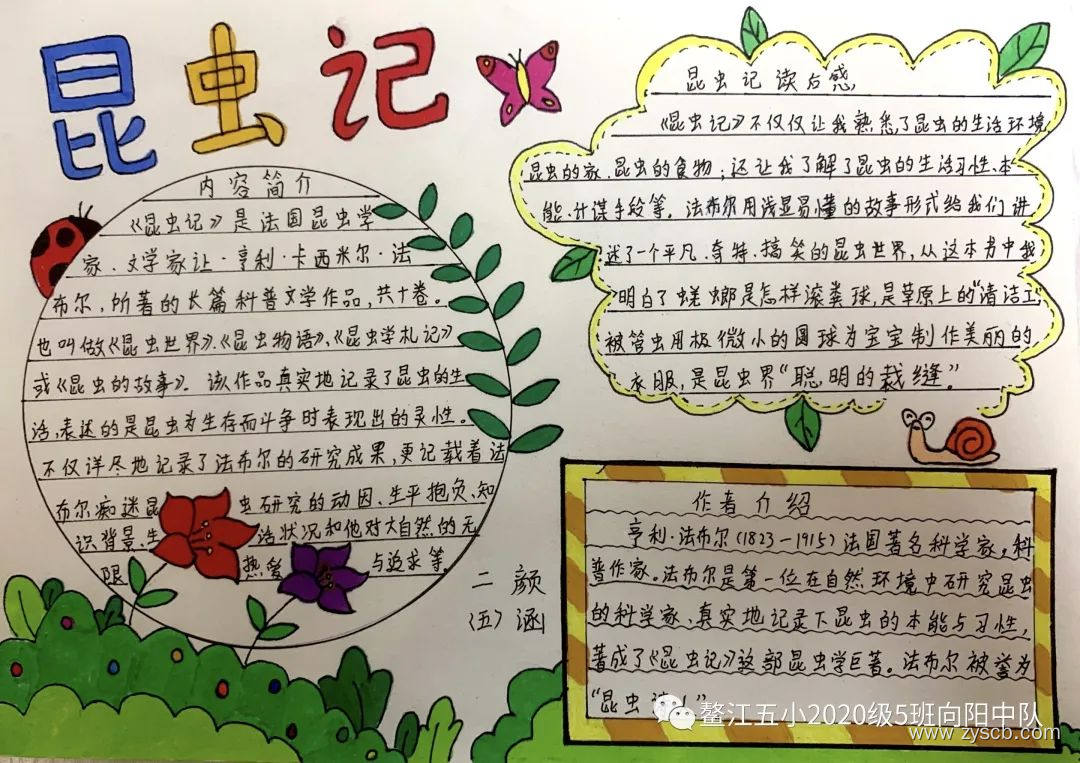 昆虫记
内容简介
《昆虫记》是法国昆虫学
家、文学家让·亨利·卡西米尔·法
布尔,所著的长篇科普文学作品,共十卷。
也叫做《昆虫世界》、《昆虫物语》、《昆虫学札记》
或《昆虫的故事》。该作品真实地记录了昆虫的生
活,表述的是昆虫为生存而斗争时表现出的灵性。
不仅详尽地记录了法布尔的研究成果,更记载着法
布尔痴迷昆虫研究的动因、生平抱负、知
识背景、生活状况和他对大自然的无
限热爱与追求等
二颜
(五)涵
昆虫记读后感
《昆虫记》不仅仅让我熟悉了昆虫的生活环境
昆虫的家、昆虫的食物;还让我了解了昆虫的生活习性、本
能、计谋手段等。法布尔用浅显易懂的故事形式给我们讲
述了一个平凡、奇特、搞笑的昆虫世界,从这本书中我
明白了蜣螂是怎样滚粪球,是草原上的“清洁工”
被管虫用极微小的圆球为宝宝制作美丽的
衣服,是昆虫界“聪明的裁缝”。
作者介绍
亨利·法布尔(1823-1915)法国著名科学家,科
普作家。法布尔是第一位在自然环境中研究昆虫
的科学家、真实地记录下昆虫的本能与习性,
著成了《昆虫记》这部昆虫学巨著。法布尔被誉为
“昆虫
鳌江五小2020级5班向阳中队
www.zyscb.com